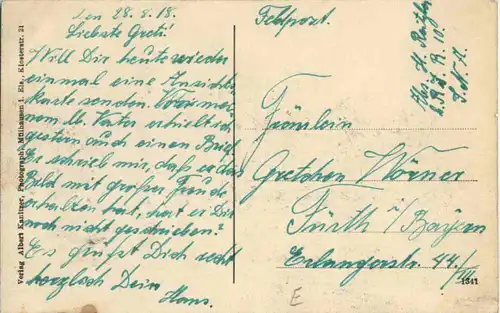 den 28.8.18.
Liebste Gretl!
Will Dir heute wieder
einmal eine Ansichts-
karte senden. Von mei-
nem lb. Vater erhielt ich
gestern auch einen Brief.
Er schrieb mir, daß er das
Bild mit großer Freude
erhalten hat, hat er Dir
noch nicht geschrieben?
Es grüßt Dich recht
herzlich Dein
Hans.
Feldpost.
Fräulein
Gretchen Wörner
Fürth i/Bayern
Erlangerstr. 44/III
E
1341
Verlag Albert Kautzner, Photograph, Mülhausen i. Els., Klosterstr. 21